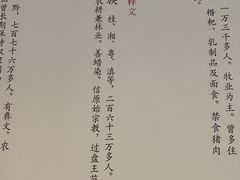 一万三千多人。牧业为主。曾多住
糌粑、乳制品及面食。禁食猪肉
释文
族 桂、湘、粤、滇等，二百六十三万多人。
农耕兼林业。善蜡染。信原始宗教，过盘王节
黔，七百七十六万多人。
有彝文。农
曾长期保持奴隶制